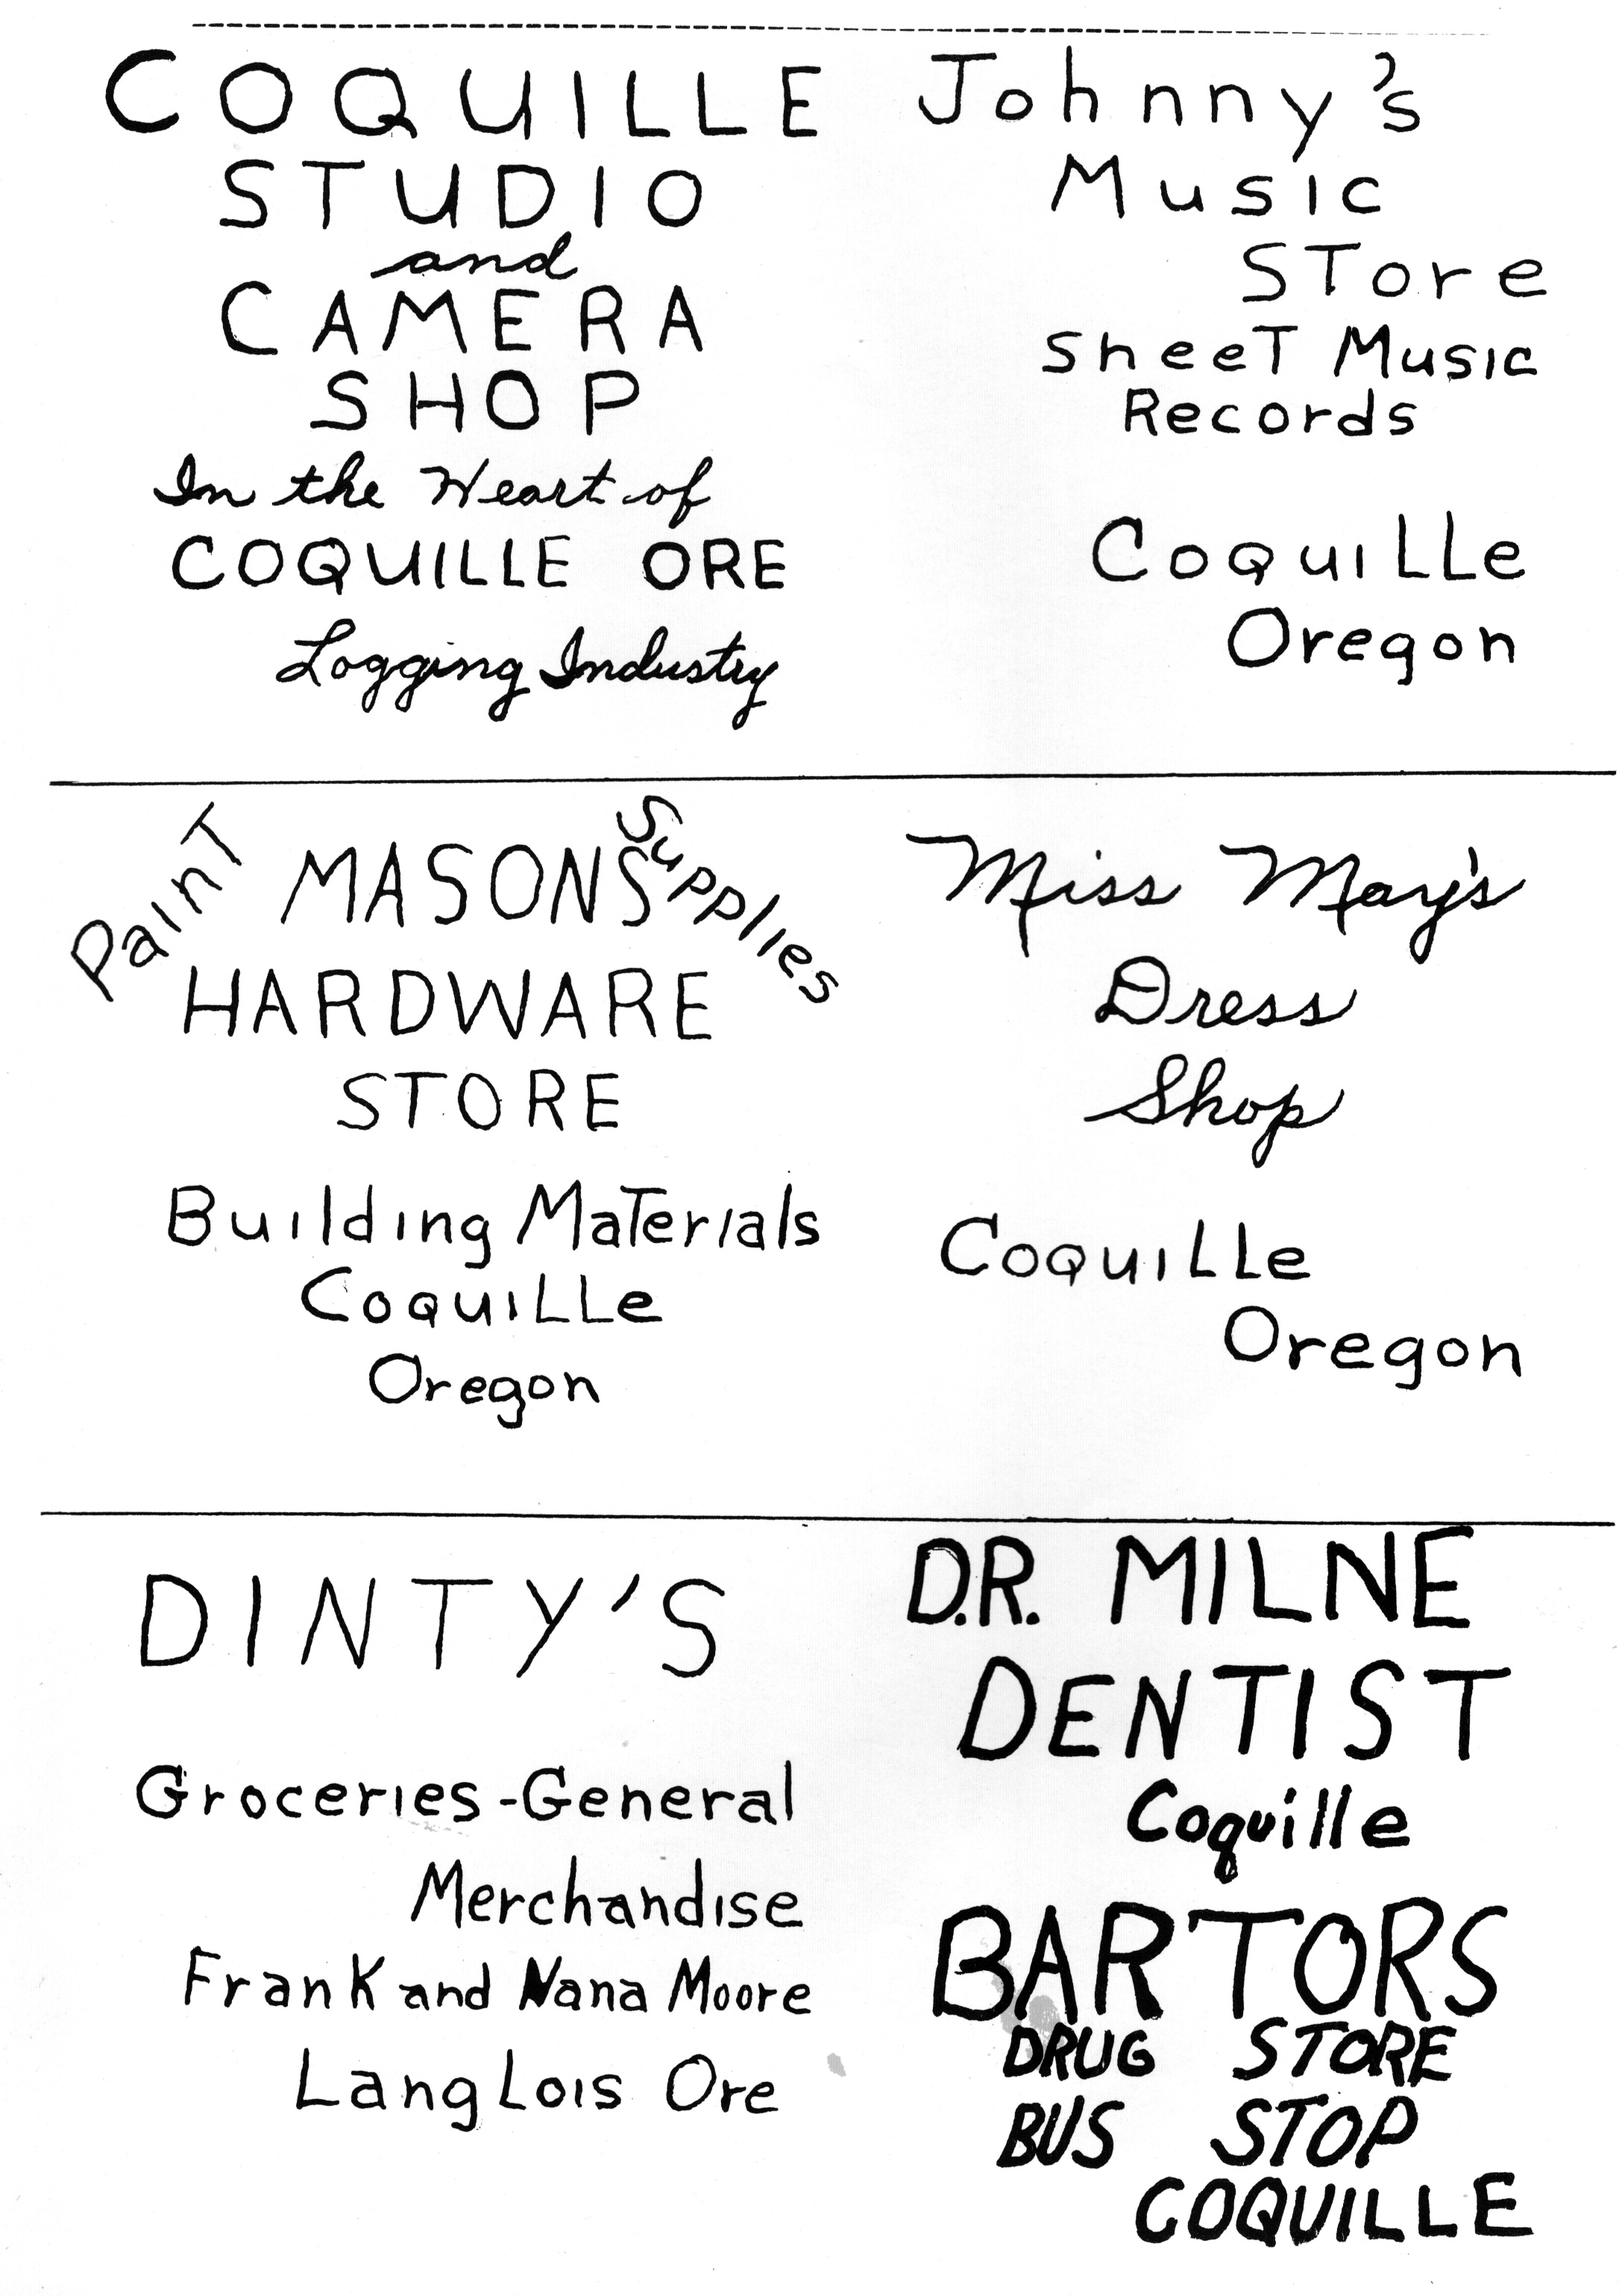 COQUILLE
STUDIO
and
CAMERA
SHOP
In the Heart of
COQUILLE ORE
Logging Industry
Johnny's
Music
STore
SheeT Music
Records
CoquiLLe
Oregon
PainT
MASONS
Supplies
HARDWARE
STORE
Building MaTerials
CoquiLLe
Oregon
Miss May's
Dress
Shop
CoquiLLe
Oregon
DINTY'S
Groceries-General
Merchandise
FranK and Nana Moore
LangLois Ore
D.R. MILNE
DENTIST
Coquille
BARTORS
DRUG STORE
BUS STOP
COQUILLE